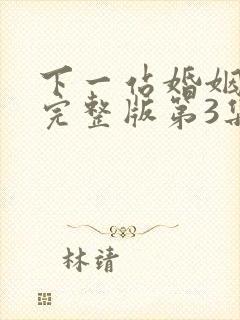 下一站婚姻
完整版第3集
林靖